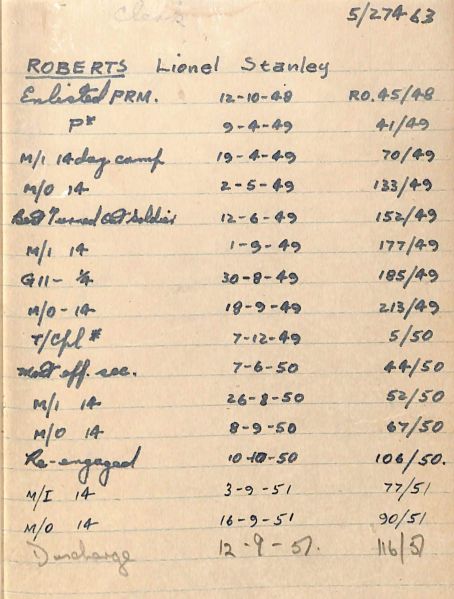 Clerk 5/274 63
ROBERTS Lionel Stanley
Enlisted PRM. 12-10-48 RO. 45/48
P* 9-4-49 41/49
M/I 14 day camp 19-4-49 70/49
M/O 14 2-5-49 133/49
Best Turned Out Soldier 12-6-49 152/49
M/I 14 1-9-49 177/49
G11- 1/4 30-8-49 185/49
M/O - 14 18-9-49 213/49
T/Cpl * 7-12-49 5/50
Most eff. sec. 7-6-50 44/50
M/I 14 26-8-50 52/50
M/O 14 8-9-50 67/50
Re-engaged 10-10-50 106/50.
M/I 14 3-9-51 77/51
M/O 14 16-9-51 90/51
Discharge 12-9-51. 116/51